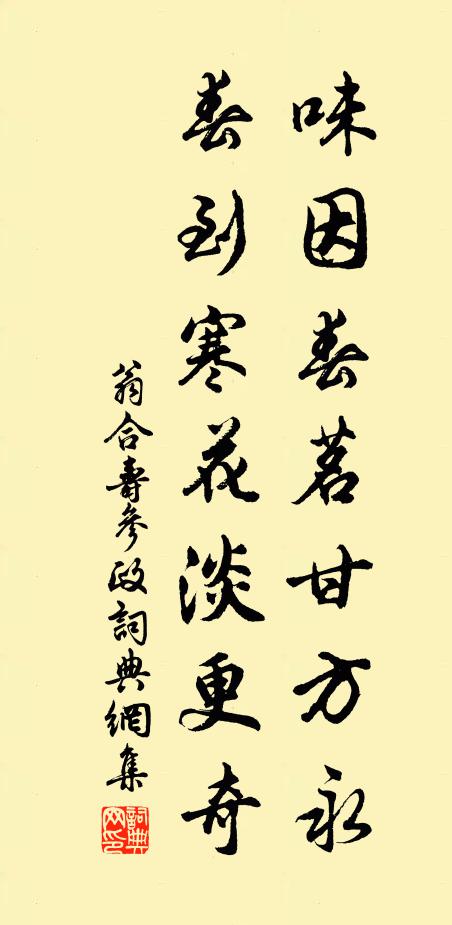 味因春茗甘方永
春到寒花淡更奇
翁合壽參政詞典網集
詞典
网印